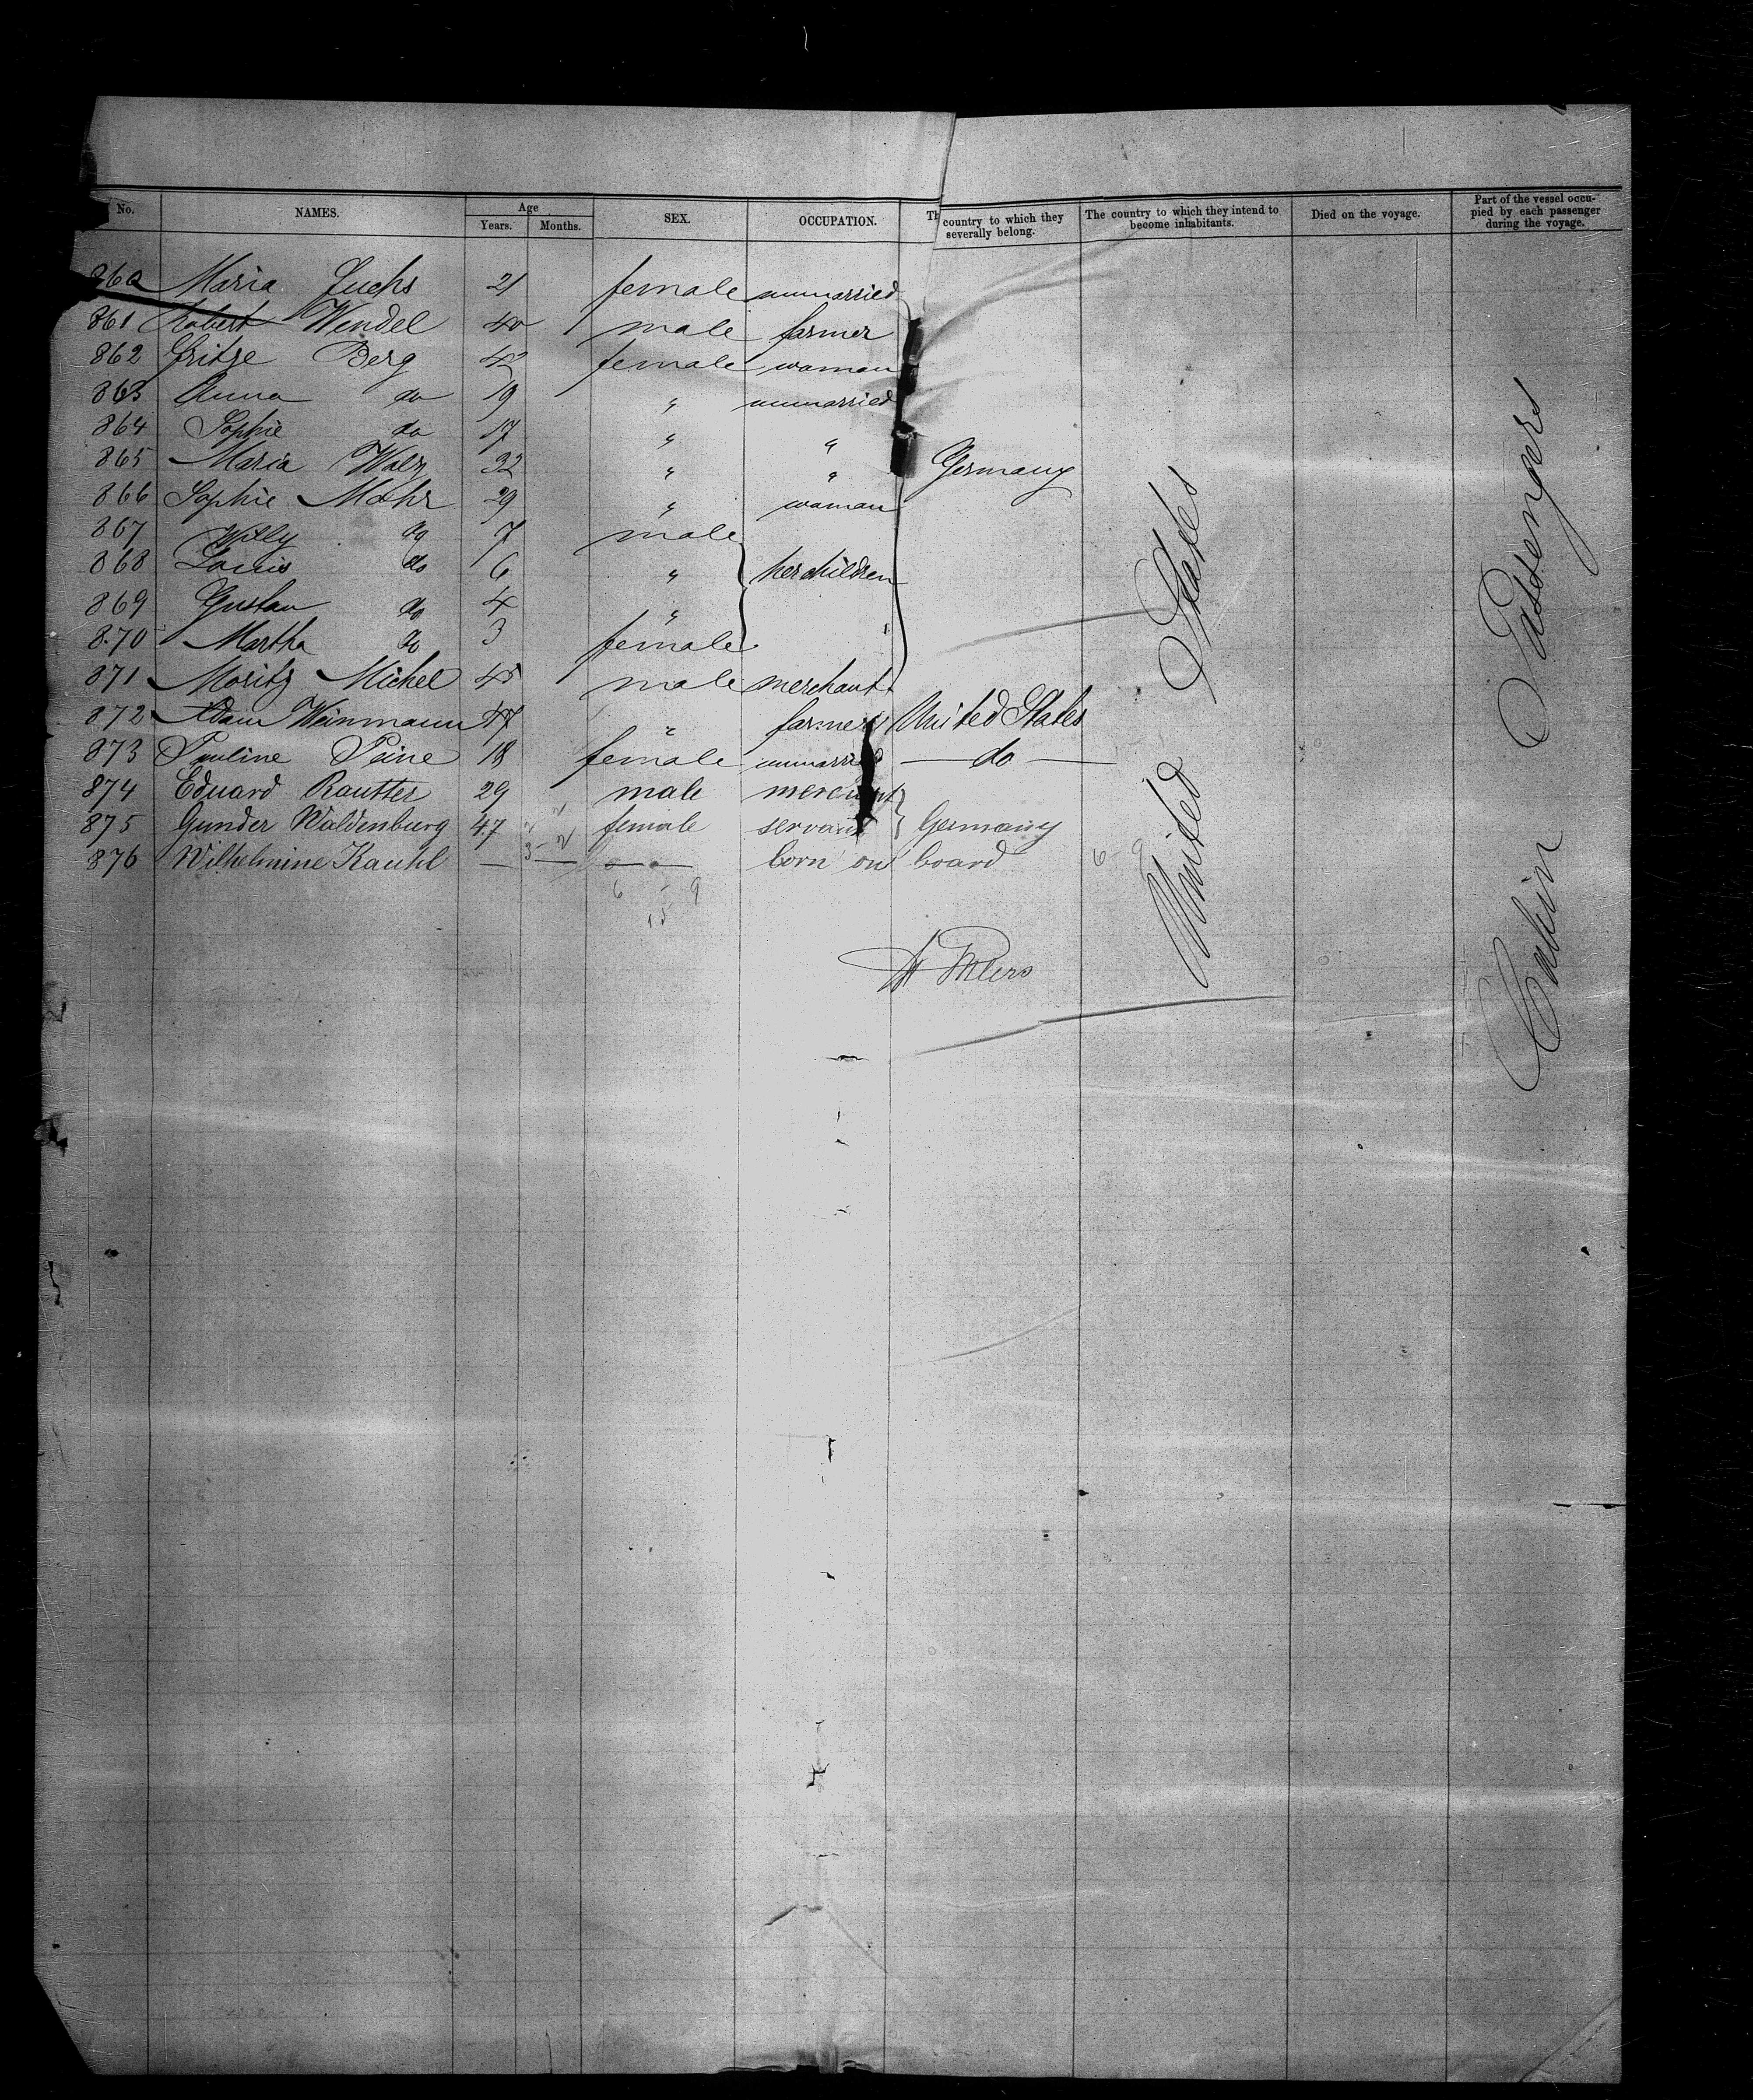 No. NAMES. Age Years. Months. SEX. OCCUPATION. Th country to which they severally belong. The country to which they intend to become inhabitants. Died on the voyage. Part of the vessel occupied by each passenger during the voyage.
860 Maria Fuchs 21 female unmarried
861 Robert Wendel 40 male farmer
862 Fritze Berg 42 female woman
863 Anna do 19 " unmarried
864 Sophie do 17 " "
865 Maria Walz 32 " " Germany
866 Sophie Mohr 29 " woman
867 Willy do 7 male
868 Louis do 6 " her children
869 Gustav do 4 "
870 Martha do 3 female
871 Moritz Michel 45 male merchant
872 Adam Weinmann 47 " farmer United States
873 Pauline Peine 18 female unmarried — do —
874 Eduard Rautter 29 male merchant
875 Gunder Waldenburg 47 female servant Germany
876 Wilhelmine Kauhl — — — born on board
6 - 9
15
6 - 9
United States
Cabin Passengers